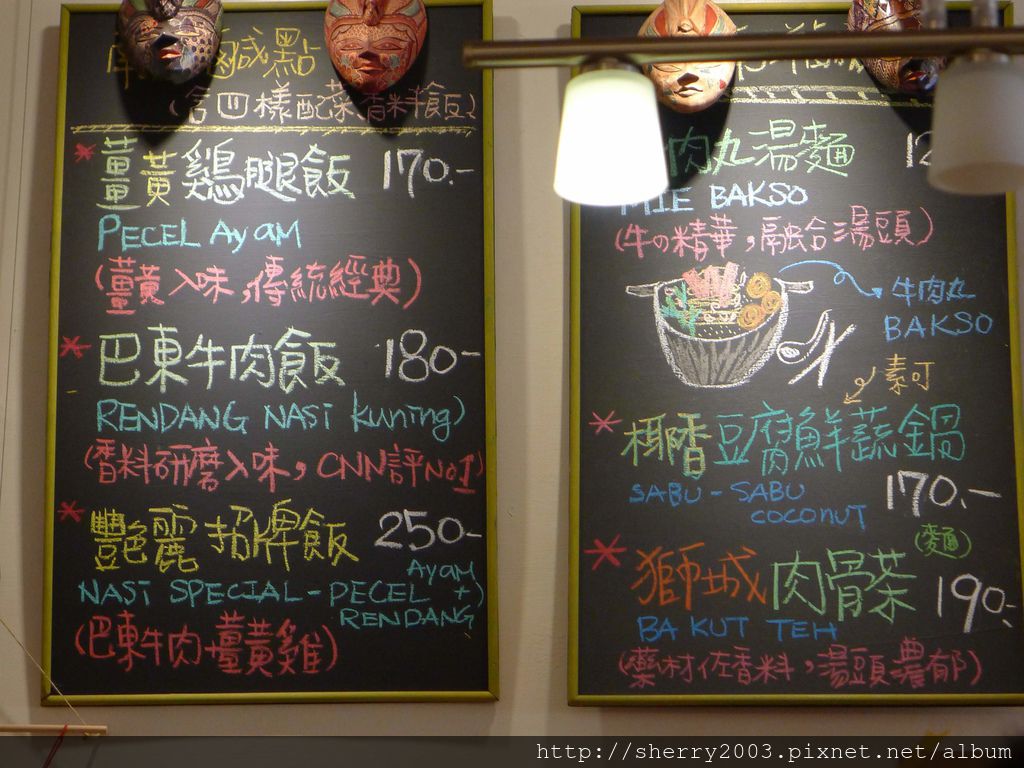 鹹點
(含四樣配菜,香料飯)
*薑黃鷄腿飯 170.-
PECEL AyAM
(薑黃入味,傳統經典)
*巴東牛肉飯 180-
RENDANG NASi kuning)
(香料研磨入味,CNN評No1)
*豔麗招牌飯 250-
NASi SPECIAL-PECEL AyAM +)
RENDANG
(巴東牛肉+薑黃雞)
肉丸湯麵
MIE BAKSO
(牛の精華,融合湯頭)
牛肉丸
BAKSO
素可
*椰香豆腐鮮蔬鍋
SABU-SABU
COCONUT
170.-
*獅城肉骨茶(麵)
190.-
BA KUT TEH
(藥材佐香料,湯頭濃郁)
http://sherry2003.pixnet.net/album